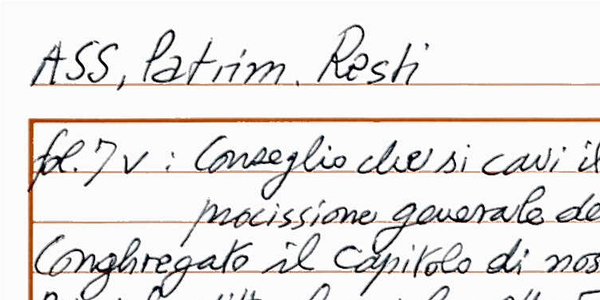 ASS, Patrim. Resti
fol. 7 v : Conseglio che si cavi il
procissione generale de
Conghregato il Capitolo di nos